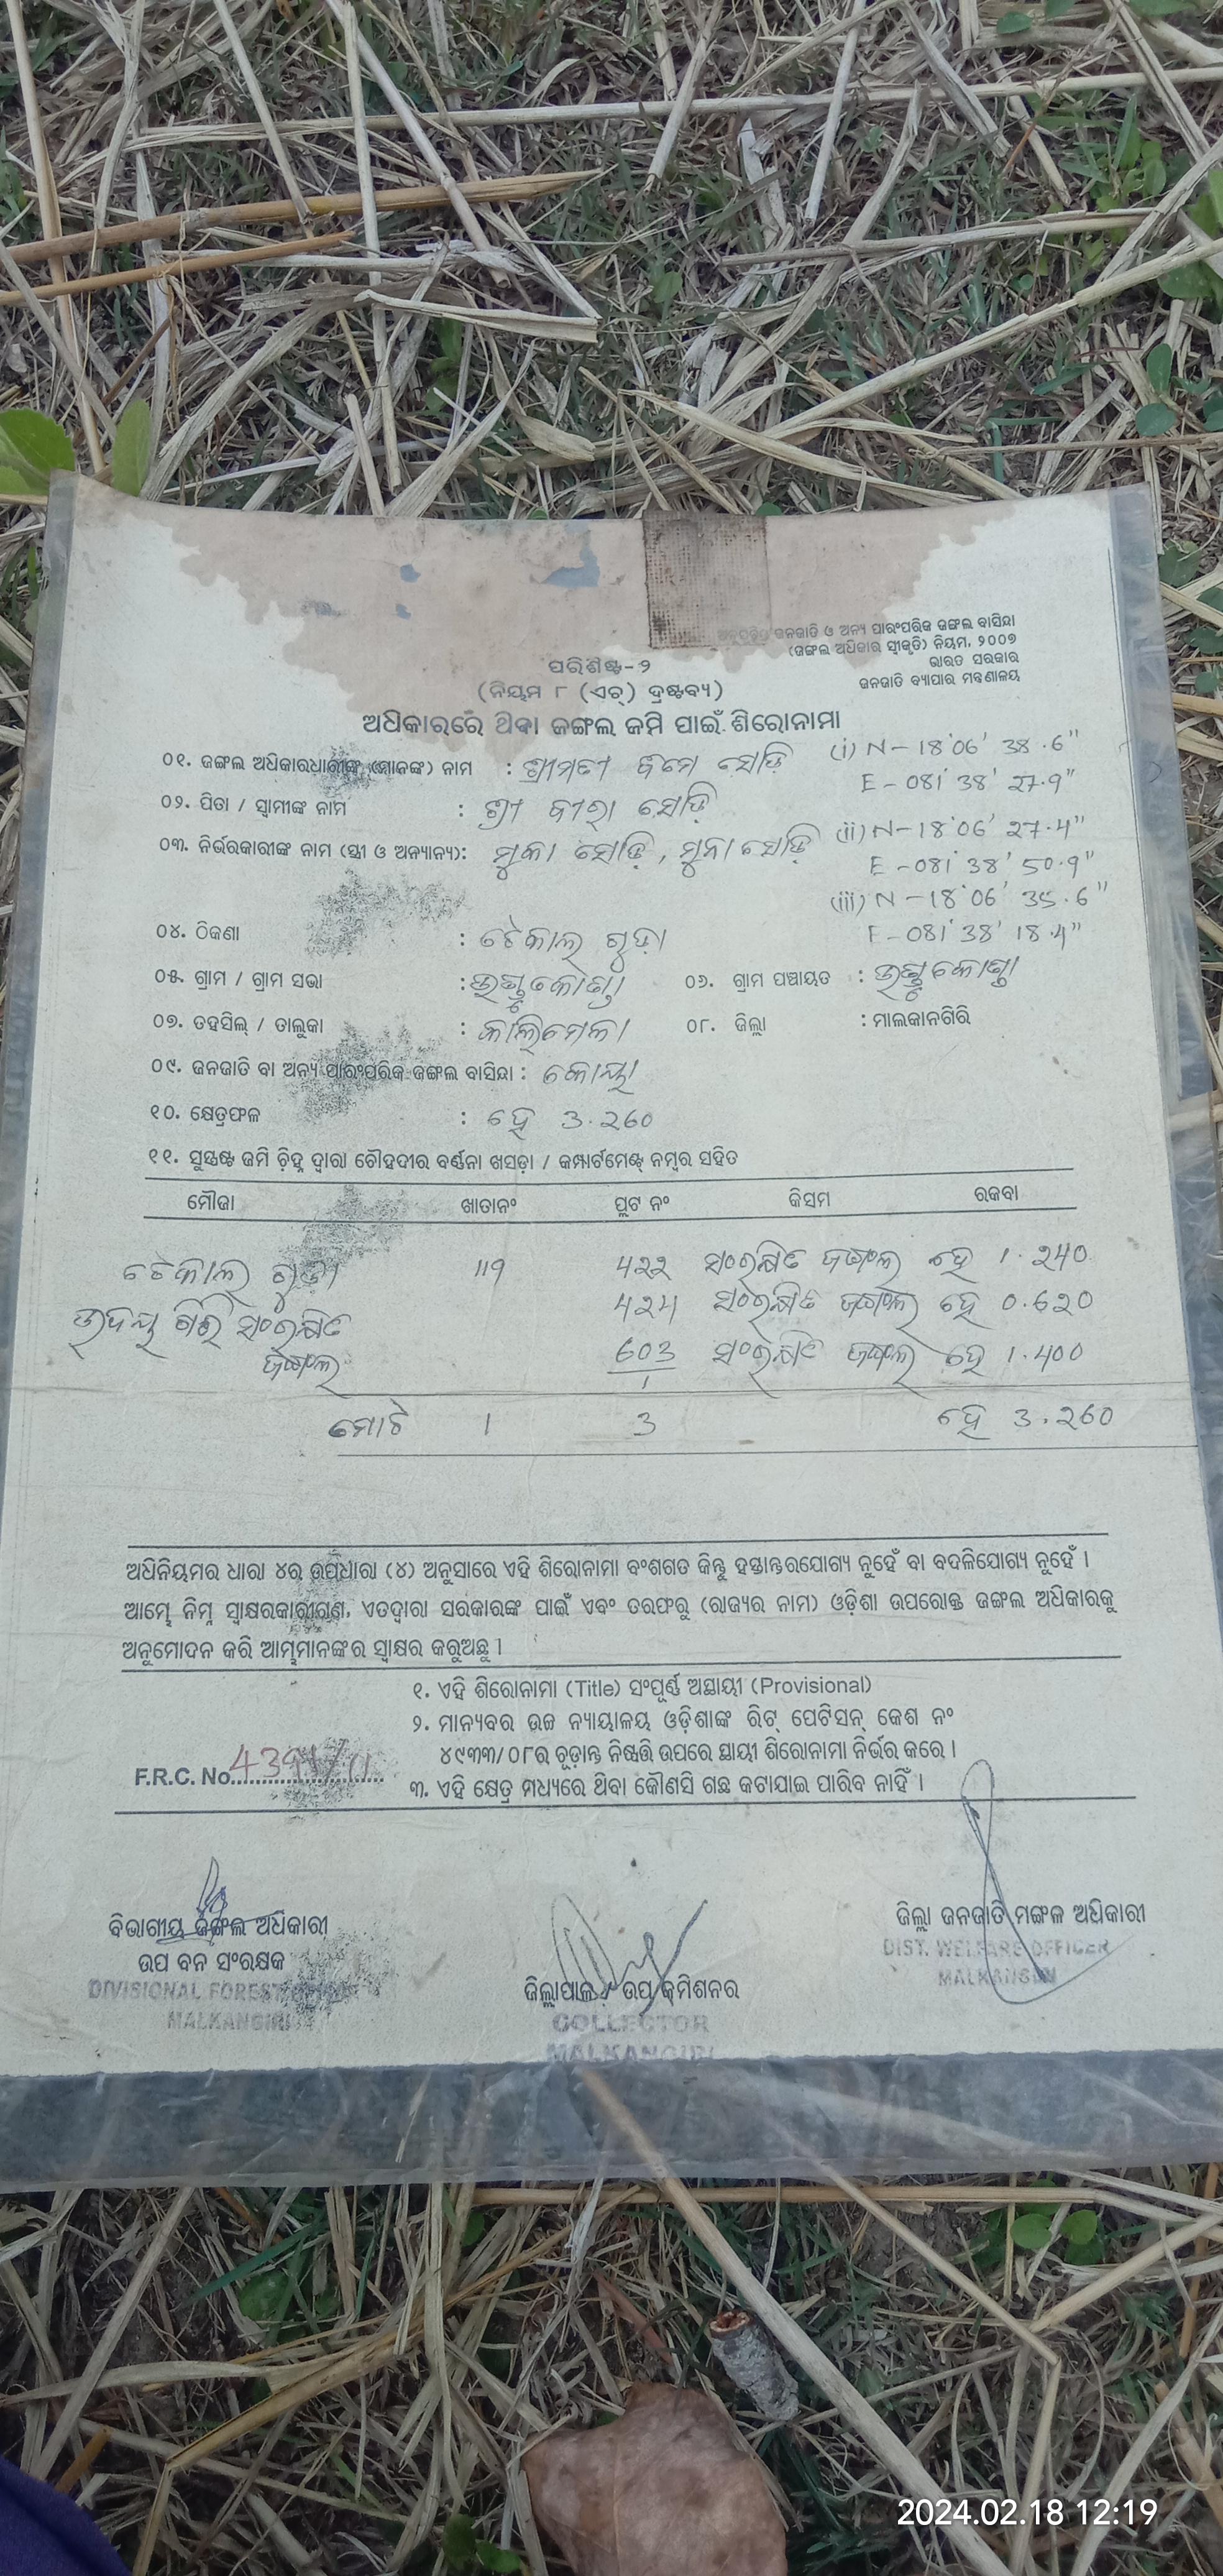 ଅନୁସୂଚିତ ଜନଜାତି ଓ ଅନ୍ୟ ପାରଂପରିକ ଜଙ୍ଗଲ ବାସିନ୍ଦା
(ଜଙ୍ଗଲ ଅଧିକାର ସ୍ୱୀକୃତି) ନିୟମ, ୨୦୦୭
ଭାରତ ସରକାର
ଜନଜାତି ବ୍ୟାପାର ମନ୍ତ୍ରଣାଳୟ
ପରିଶିଷ୍ଟ-୨
(ନିୟମ ୮ (ଏଚ୍) ଦ୍ରଷ୍ଟବ୍ୟ)
ଅଧିକାରରେ ଥିବା ଜଙ୍ଗଲ ଜମି ପାଇଁ ଶିରୋନାମା
୦୧. ଜଙ୍ଗଲ ଅଧିକାରଧାରୀଙ୍କ (ମାନଙ୍କ) ନାମ : ଶ୍ରୀମତୀ ସୋଡ଼ି (i) N-18°06' 38.6"
E-081°38' 27.9"
୦୨. ପିତା / ସ୍ୱାମୀଙ୍କ ନାମ : ଶ୍ରୀ ସୋଡ଼ି
୦୩. ନିର୍ଭରକାରୀଙ୍କ ନାମ (ସ୍ତ୍ରୀ ଓ ଅନ୍ୟାନ୍ୟ): ମୁକା ସୋଡ଼ି, ମୁନା ସୋଡ଼ି (ii) N-18°06' 27.4"
E-081°38' 50.9"
(iii) N-18°06' 35.6"
E-081°38' 18.4"
୦୪. ଠିକଣା : ଟେକାଲ ଗୁଡ଼ା
୦୫. ଗ୍ରାମ / ଗ୍ରାମ ସଭା : ୦୬. ଗ୍ରାମ ପଞ୍ଚାୟତ :
୦୭. ତହସିଲ୍ / ତାଲୁକା : କାଲିମେଳା ୦୮. ଜିଲ୍ଲା : ମାଲକାନଗିରି
୦୯. ଜନଜାତି ବା ଅନ୍ୟ ପାରଂପରିକ ଜଙ୍ଗଲ ବାସିନ୍ଦା : କୋୟା
୧୦. କ୍ଷେତ୍ରଫଳ : ହେ 3.260
୧୧. ସୁସ୍ପଷ୍ଟ ଜମି ଚିହ୍ନ ଦ୍ୱାରା ଚୌହଦୀର ବର୍ଣ୍ଣନା ଖସଡ଼ା / କମ୍ପାର୍ଟମେଣ୍ଟ୍ ନମ୍ବର ସହିତ
ମୌଜା ଖାତାନଂ ପ୍ଲଟ ନଂ କିସମ ରକବା
ଟେକାଲ ଗୁଡ଼ା 119 422 ସଂରକ୍ଷିତ ଜଙ୍ଗଲ ହେ 1.240
ଉଦୟ ଗିରି ସଂରକ୍ଷିତ 424 ସଂରକ୍ଷିତ ଜଙ୍ଗଲ ହେ 0.620
ଜଙ୍ଗଲ 603/1 ସଂରକ୍ଷିତ ଜଙ୍ଗଲ ହେ 1.400
ମୋଟ 1 3 ହେ 3.260
ଅଧିନିୟମର ଧାରା ୪ର ଉପଧାରା (୪) ଅନୁସାରେ ଏହି ଶିରୋନାମା ବଂଶଗତ କିନ୍ତୁ ହସ୍ତାନ୍ତରଯୋଗ୍ୟ ନୁହେଁ ବା ବଦଳିଯୋଗ୍ୟ ନୁହେଁ ।
ଆମ୍ଭେ ନିମ୍ନ ସ୍ୱାକ୍ଷରକାରୀଗଣ, ଏତଦ୍ୱାରା ସରକାରଙ୍କ ପାଇଁ ଏବଂ ତରଫରୁ (ରାଜ୍ୟର ନାମ) ଓଡ଼ିଶା ଉପରୋକ୍ତ ଜଙ୍ଗଲ ଅଧିକାରକୁ
ଅନୁମୋଦନ କରି ଆମ୍ଭମାନଙ୍କର ସ୍ୱାକ୍ଷର କରୁଅଛୁ ।
୧. ଏହି ଶିରୋନାମା (Title) ସଂପୂର୍ଣ୍ଣ ଅସ୍ଥାୟୀ (Provisional)
୨. ମାନ୍ୟବର ଉଚ୍ଚ ନ୍ୟାୟାଳୟ ଓଡ଼ିଶାଙ୍କ ରିଟ୍ ପେଟିସନ୍ କେଶ ନଂ
୪୯୩୩/୦୮ର ଚୂଡ଼ାନ୍ତ ନିଷ୍ପତ୍ତି ଉପରେ ସ୍ଥାୟୀ ଶିରୋନାମା ନିର୍ଭର କରେ ।
F.R.C. No.
୩. ଏହି କ୍ଷେତ୍ର ମଧ୍ୟରେ ଥିବା କୌଣସି ଗଛ କଟାଯାଇ ପାରିବ ନାହିଁ ।
ବିଭାଗୀୟ ଜଙ୍ଗଲ ଅଧିକାରୀ
ଉପ ବନ ସଂରକ୍ଷକ
DIVISIONAL FOREST
MALKANGIRI
ଜିଲ୍ଲାପାଳ / ଉପ କମିଶନର
COLLECTOR
MALKANGIRI
ଜିଲ୍ଲା ଜନଜାତି ମଙ୍ଗଳ ଅଧିକାରୀ
DIST. WELFARE OFFICER
MALKANGIRI
2024.02.18 12:19